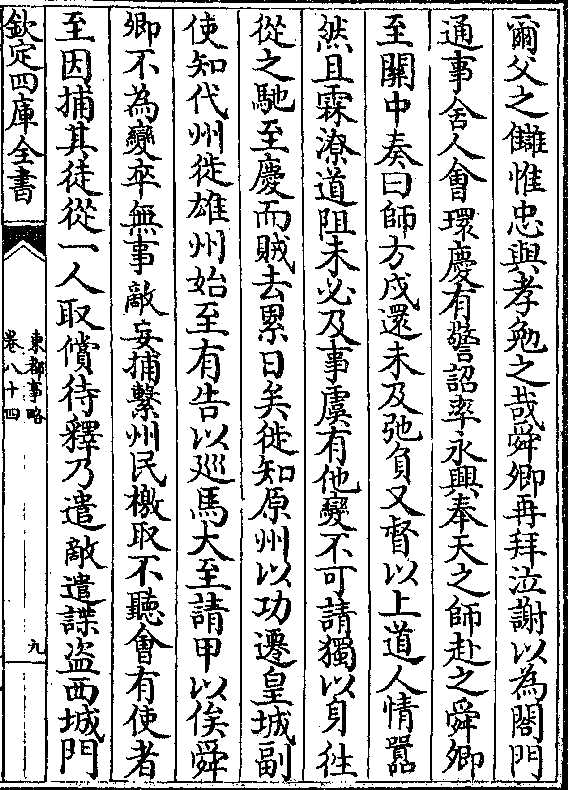 爾父之讎惟忠與孝勉之哉舜卿再拜泣謝以為閤門
通事舍人會環慶有警詔率永興奉天之師赴之舜卿
至關中奏曰師方戍還未及弛負又督以上道人情囂
然且霖潦道阻未必及事虞有他變不可請獨以身往
從之馳至慶而賊去累日矣徙知原州以功遷皇城副
使知代州徙雄州始至有告以巡馬大至請甲以俟舜
卿不為變卒無事敵妄捕繫州民檄取不聽會有使者
至因捕其徒從一人取償待釋乃遣敵遣諜盜西城門
欽定四庫全書
東都事略
卷八十四
九